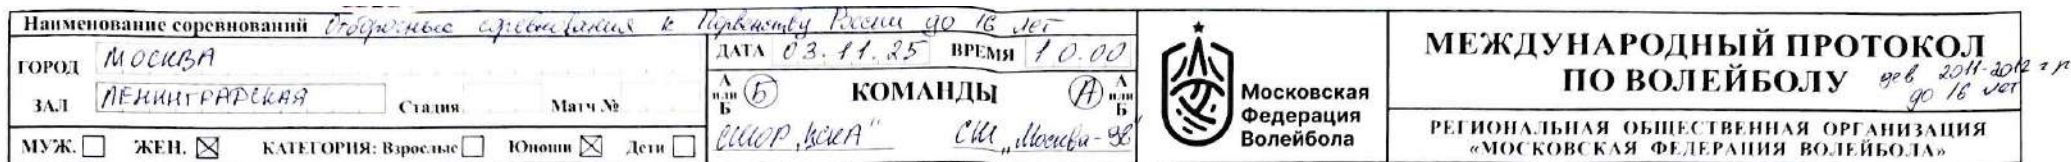 Наименование соревнований Отборочные соревнования к Первенству России до 16 лет
ГОРОД МОСКВА
ЗАЛ ЛЕНИНГРАДСКАЯ Стадия Матч №
МУЖ. ЖЕН. КАТЕГОРИЯ: Взрослые Юноши Дети
ДАТА 03.11.25 ВРЕМЯ 10.00
А или Б Б КОМАНДЫ А А или Б
СШОР "ЦСКА" СШ "Москва-98"
Московская
Федерация
Волейбола
МЕЖДУНАРОДНЫЙ ПРОТОКОЛ
ПО ВОЛЕЙБОЛУ
дев 2011-2012 г р
до 16 лет
РЕГИОНАЛЬНАЯ ОБЩЕСТВЕННАЯ ОРГАНИЗАЦИЯ
«МОСКОВСКАЯ ФЕДЕРАЦИЯ ВОЛЕЙБОЛА»